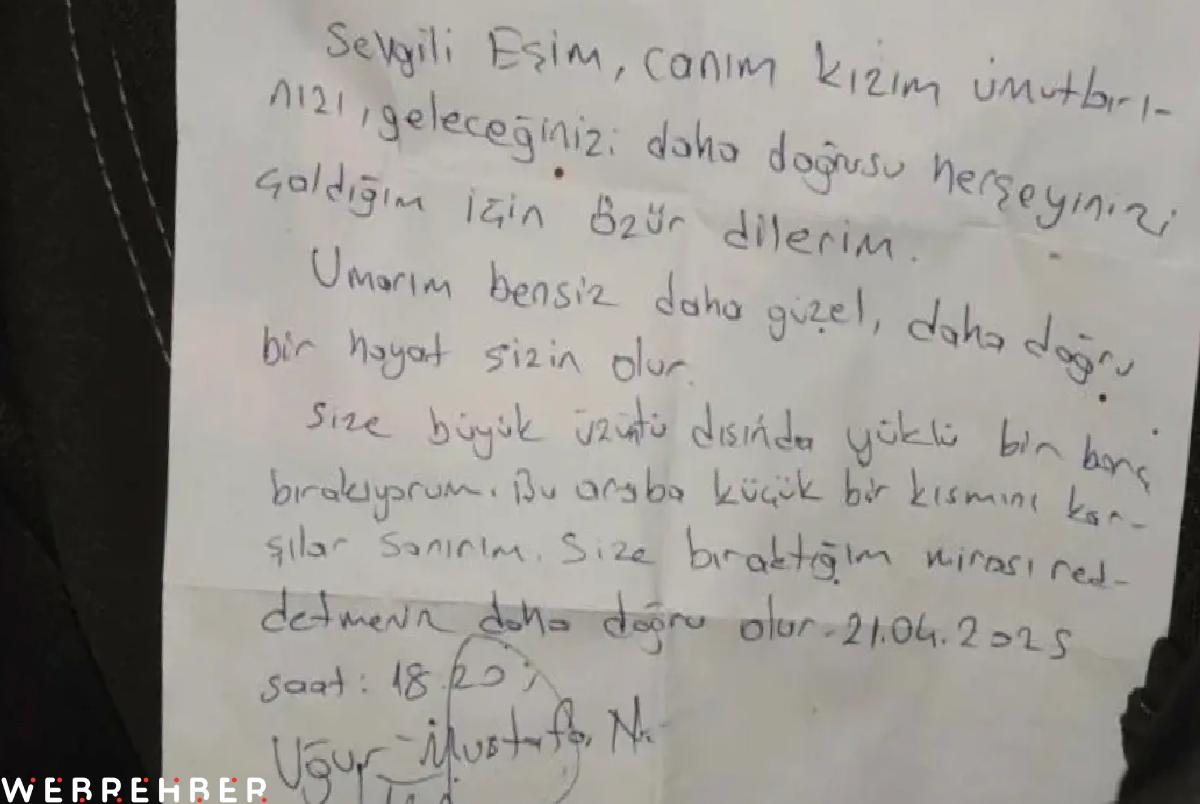 Sevgili Eşim, canım kızım ümutları-
nızı, geleceğinizi daha doğrusu herşeyinizi
çaldığım için özür dilerim.
Umarım bensiz daha güzel, daha doğru
bir hayat sizin olur.
Size büyük üzüntü dışında yüklü bir borç
bırakıyorum. Bu araba küçük bir kısmını kar-
şılar sanırım. Size bıraktığım mirası red-
detmeniz daha doğru olur. 21.04.2025
saat: 18.20
Uğur Mustafa N.
WEBREHBER